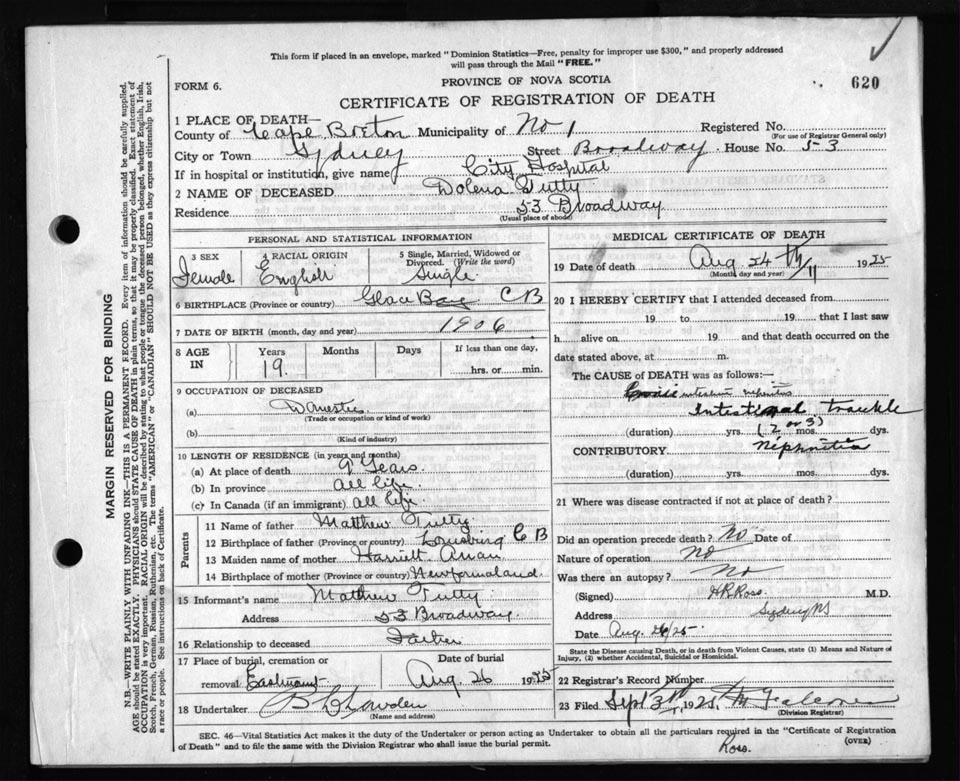 This form if placed in an envelope, marked "Dominion Statistics—Free, penalty for improper use $300," and properly addressed
will pass through the Mail "FREE."
FORM 6.
PROVINCE OF NOVA SCOTIA
620
CERTIFICATE OF REGISTRATION OF DEATH
1 PLACE OF DEATH—
County of Cape Breton Municipality of No 1 Registered No.
(For use of Registrar General only)
City or Town Sydney Street Broadway House No. 53
If in hospital or institution, give name City Hospital
2 NAME OF DECEASED Dolena Tutty
Residence 53 Broadway
(Usual place of abode)
PERSONAL AND STATISTICAL INFORMATION
3 SEX Female
4 RACIAL ORIGIN English
5 Single, Married, Widowed or Divorced. (Write the word) Single
6 BIRTHPLACE (Province or country) Glace Bay C B
7 DATE OF BIRTH (month, day and year) 1906
8 AGE IN Years 19 Months Days If less than one day, hrs. or min.
9 OCCUPATION OF DECEASED
(a) Domestic
(Trade or occupation or kind of work)
(b)
(Kind of industry)
10 LENGTH OF RESIDENCE (in years and months)
(a) At place of death 9 Years.
(b) In province all life
(c) In Canada (if an immigrant) all life
Parents
11 Name of father Matthew Tutty
12 Birthplace of father (Province or country) Louisburg C B
13 Maiden name of mother Harriett
14 Birthplace of mother (Province or country)
15 Informant's name Matthew Tutty
Address 53 Broadway
16 Relationship to deceased Father
17 Place of burial, cremation or removal Eastmount Date of burial Aug 26 1925
18 Undertaker
(Name and address)
MEDICAL CERTIFICATE OF DEATH
19 Date of death Aug 24 th 1925
(Month, day and year)
20 I HEREBY CERTIFY that I attended deceased from
19 to 19 that I last saw
h alive on 19 and that death occurred on the
date stated above, at m.
The CAUSE of DEATH was as follows:—
Intestinal trouble
(duration) yrs. (2 or 3) mos. dys.
CONTRIBUTORY Nephritis
(duration) yrs. mos. dys.
21 Where was disease contracted if not at place of death?
Did an operation precede death? No Date of
Nature of operation No
Was there an autopsy? No
(Signed) H R Ross. M.D.
Address Sydney NS
Date Aug. 26/25
State the Disease causing Death, or in death from Violent Causes, state (1) Means and Nature of
Injury, (2) whether Accidental, Suicidal or Homicidal.
22 Registrar's Record Number
23 Filed Sept 3rd 1925
(Division Registrar)
SEC. 46—Vital Statistics Act makes it the duty of the Undertaker or person acting as Undertaker to obtain all the particulars required in the "Certificate of Registration
of Death" and to file the same with the Division Registrar who shall issue the burial permit.
Ross.
(OVER)
MARGIN RESERVED FOR BINDING
N.B.—WRITE PLAINLY WITH UNFADING INK—THIS IS A PERMANENT RECORD. Every item of information should be carefully supplied.
AGE should be stated EXACTLY. PHYSICIANS should STATE CAUSE OF DEATH in plain terms, so that it may be properly classified. Exact statement of
OCCUPATION is very important. RACIAL ORIGIN will be described by stating to what people or tongue the deceased person belonged, whether English, Irish,
Scotch, French, German, Russian, Ruthenian, etc. The terms "AMERICAN" or "CANADIAN" SHOULD NOT BE USED as they express citizenship but not
a race or people. See instructions on back of Certificate.